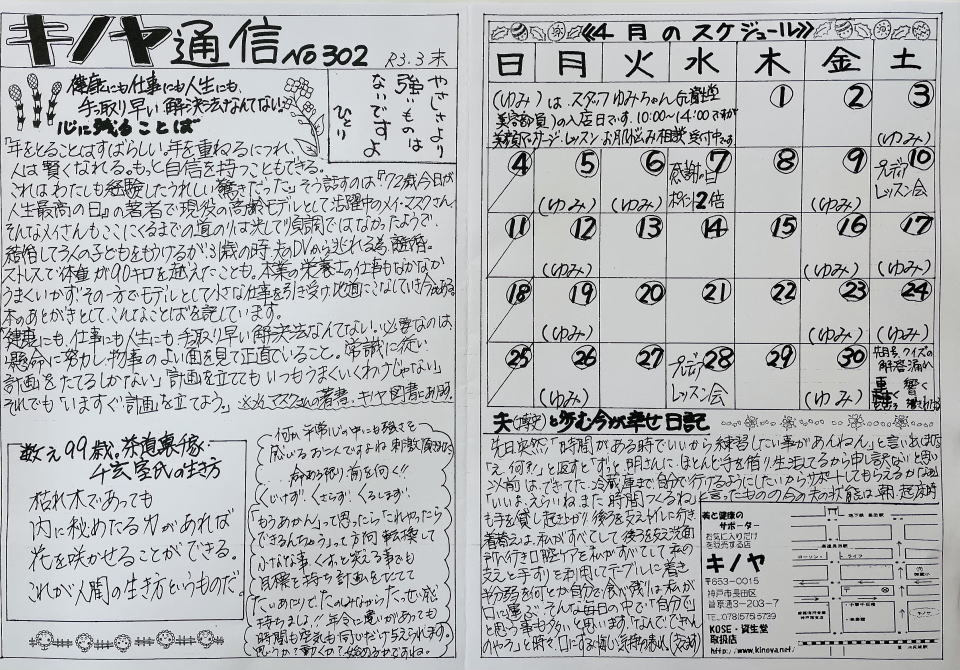 キノヤ通信 No302 R3.3末
健康にも仕事にも人生にも、
手取り早い解決法なんてない。
心に残ることば
やさしさより
強いものは
ないですよ
ひとり
「年をとることはすばらしい。年を重ねるにつれ、
人は賢くなれる。もっと自信を持つこともできる。
これはわたしも経験したうれしい驚きだった。」そう話すのは『72歳、今日が
人生最高の日』の著者で現役の高齢モデルとして活躍中のメイ・マスクさん。
そんなメイさんもここにくるまでの道のりは決して順調ではなかったようで、
結婚して3人の子どもをもうけるが、31歳の時、夫のDVから逃れる為、離婚。
ストレスで体重が90キロを越えたことも。本業の栄養士の仕事もなかなか
うまくいかず、その一方でモデルとして小さな仕事を引き受け、地道にこなしていき今がある。
本のあとがきとして、こんなことばを記しています。
「健康にも、仕事にも人生にも手取り早い解決法なんてない。必要なのは、
懸命に努力し、物事のよい面を見て正直でいること。常識に従い
計画をたてるしかない」「計画を立ててもいつもうまくいくわけじゃない」
それでも「いますぐ計画」を立てよう。
数え99歳。茶道裏千家
千玄室氏の生き方
枯れ木であっても
内に秘めたる力があれば
花を咲かせることができる。
これが人間の生き方というものだ。
何か平常心の中にも強さを
感じるお二人ですよね 刺激
命ある限り前を向く!!
くじけず、くさらず、くるしまず、
「もうあかん」って思ったら「これやったら
できるんちゃう」って方向転換して
小さな事、くすっと笑える事でも
目標を持ち計画をたてて
時間も空気も同じだけ与えられます。
《4月のスケジュール》
日 月 火 水 木 金 土
(ゆみ)は、スタッフゆみちゃん(元資生堂
美容部員)の入店日です。10:00~14:00ですが
レッスン お肌の悩み相談 受付中です
① ② ③
(ゆみ)
④ ⑤ ⑥ 感謝の日 ⑦ ⑧ ⑨ ⑩
(ゆみ) (ゆみ) ポイント2倍 (ゆみ) レッスン会
⑪ ⑫ ⑬ ⑭ ⑮ ⑯ ⑰
(ゆみ) (ゆみ) (ゆみ)
⑱ ⑲ ⑳ ㉑ ㉒ ㉓ ㉔
(ゆみ) (ゆみ) (ゆみ)
㉕ ㉖ ㉗ ㉘ ㉙ ㉚ 先月号、クイズの
解答漏れ
(ゆみ) レッスン会 (ゆみ)
夫と歩む今が幸せ日記
先日突然「時間がある時でいいから練習したい事があんねん」と言い
「え、何を?」と返すと
以前はできてた、冷蔵庫まで自分で行けるようにしたいからサポートしてもらえるか
「いいよ、えらいねまた時間つくるね」と言ったものの今の夫の状態は、朝、起床時
も手を貸し起き上がり、後ろを支えトイレに行き
着替えは、私がすべてして、後ろを支え洗面
所へ行き口腔ケアを私がすべてして、私の
支えと手すりを利用してテーブルに着き
半分弱を何とか自分で食べ残りは私が
口に運ぶ。そんな毎日の中で「自分で」
と思う事も多いと思います。
美と健康の
サポーター
お気に入りだけ
を販売する店
キノヤ
〒653-0015
神戸市長田区
菅原通3-203-7
TEL.078(575)5739
KOSE・資生堂
取扱店
http://www.kinoya.net/